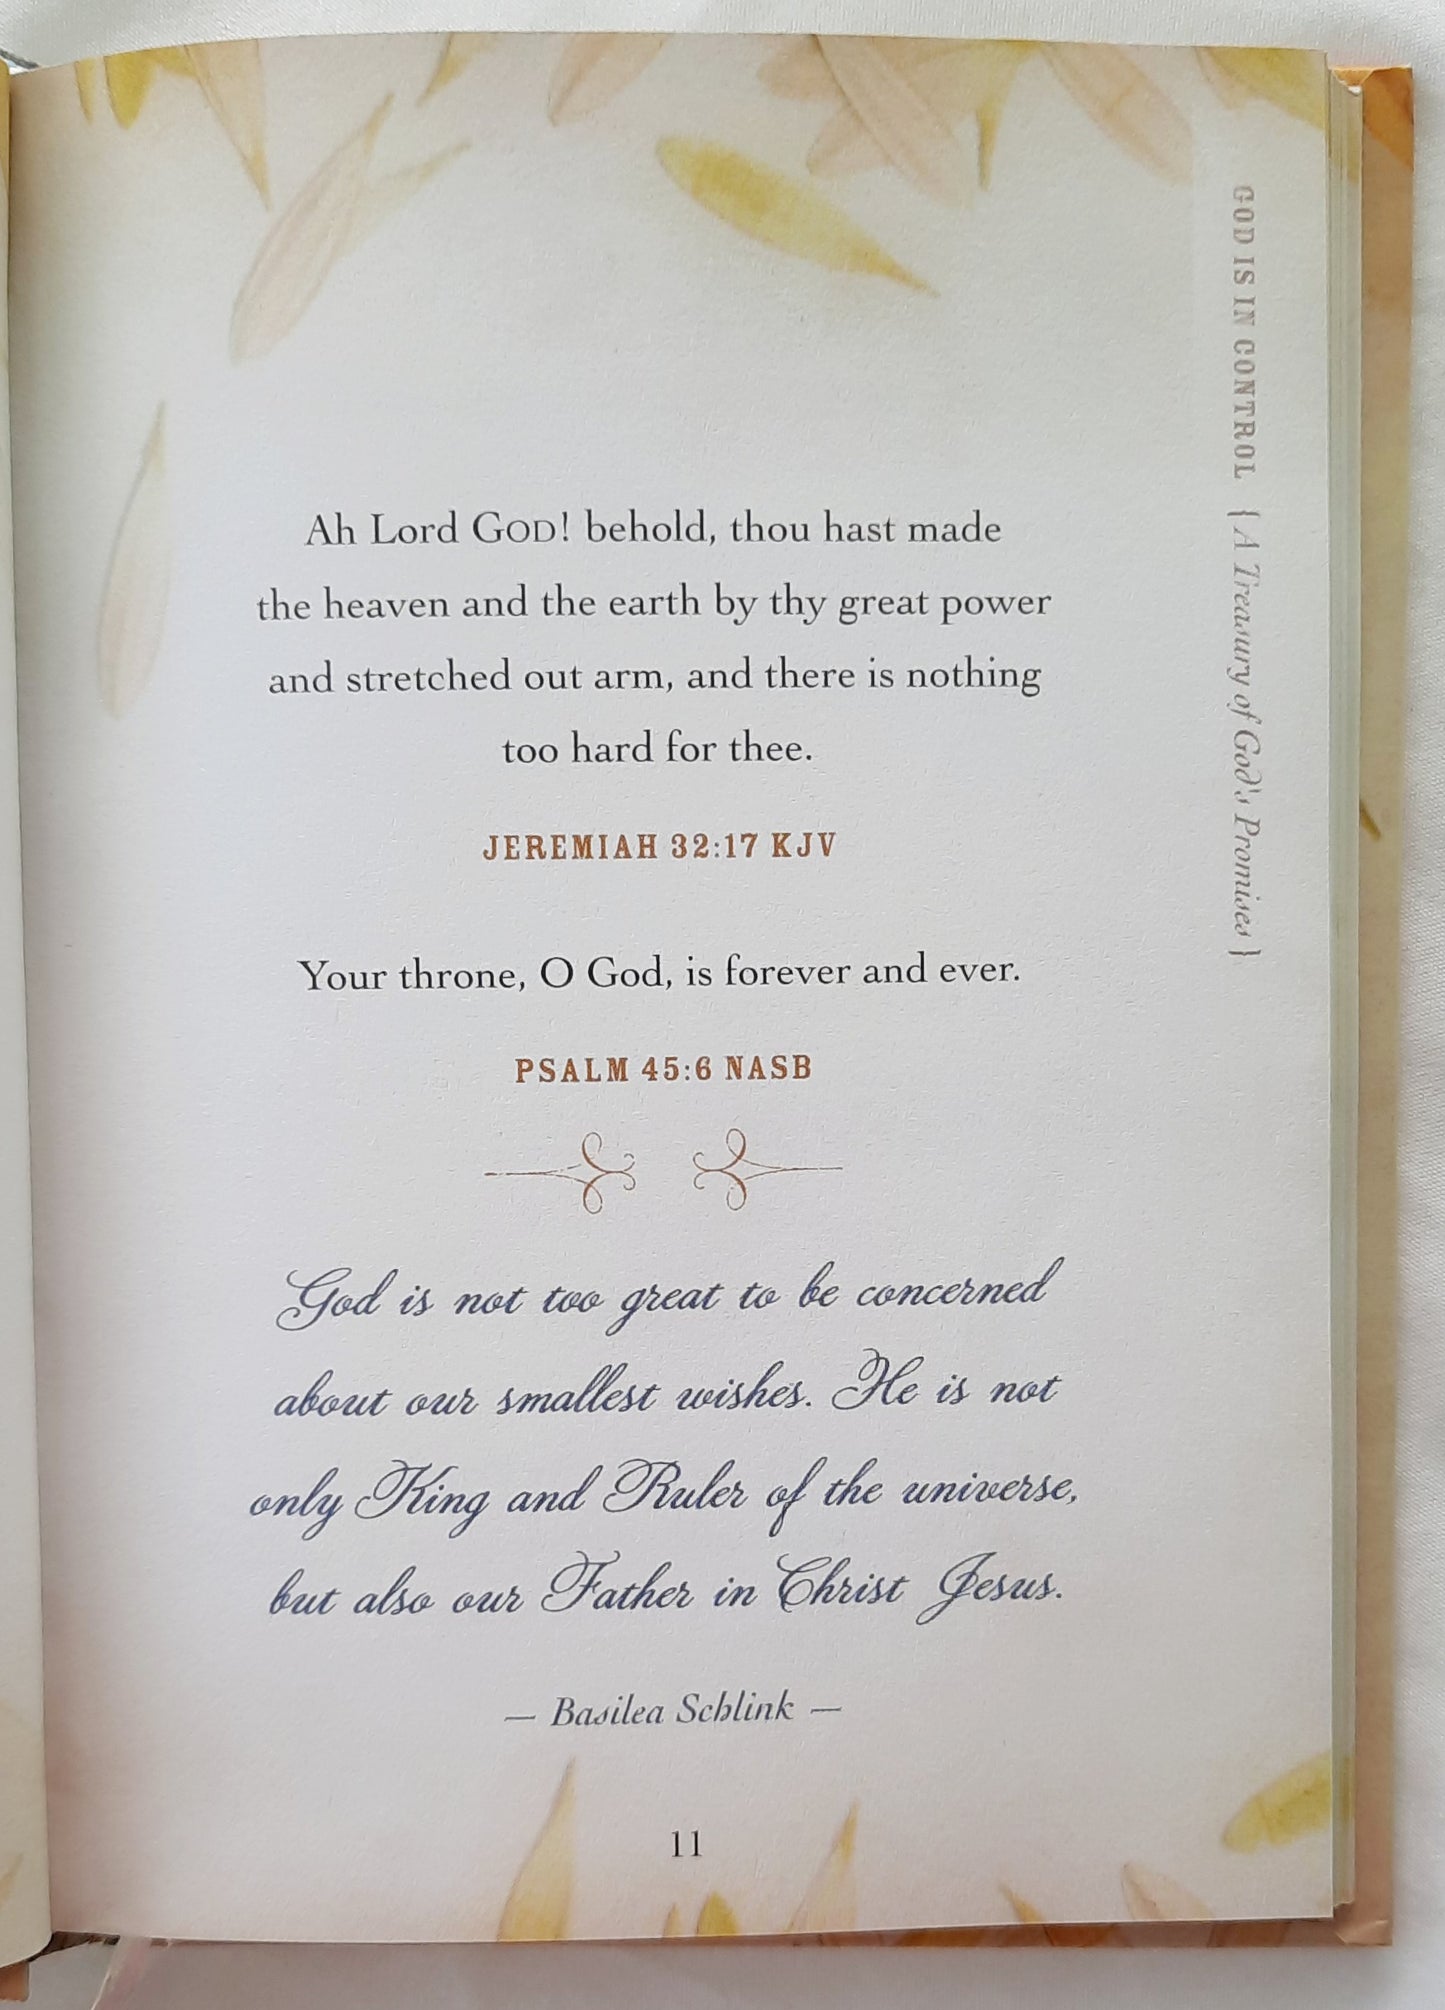 Ah Lord GOD! behold, thou hast made
the heaven and the earth by thy great power
and stretched out arm, and there is nothing
too hard for thee.
JEREMIAH 32:17 KJV
Your throne, O God, is forever and ever.
PSALM 45:6 NASB
God is not too great to be concerned
about our smallest wishes. He is not
only King and Ruler of the universe,
but also our Father in Christ Jesus.
— Basilea Schlink —
11
GOD IS IN CONTROL { A Treasury of God's Promises }